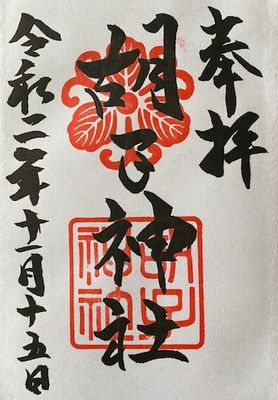 奉拝
胡子神社
胡子
神社
令和二年十一月十五日